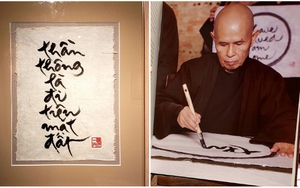 thần
thông
là
đi
trên
mặt
đất
have